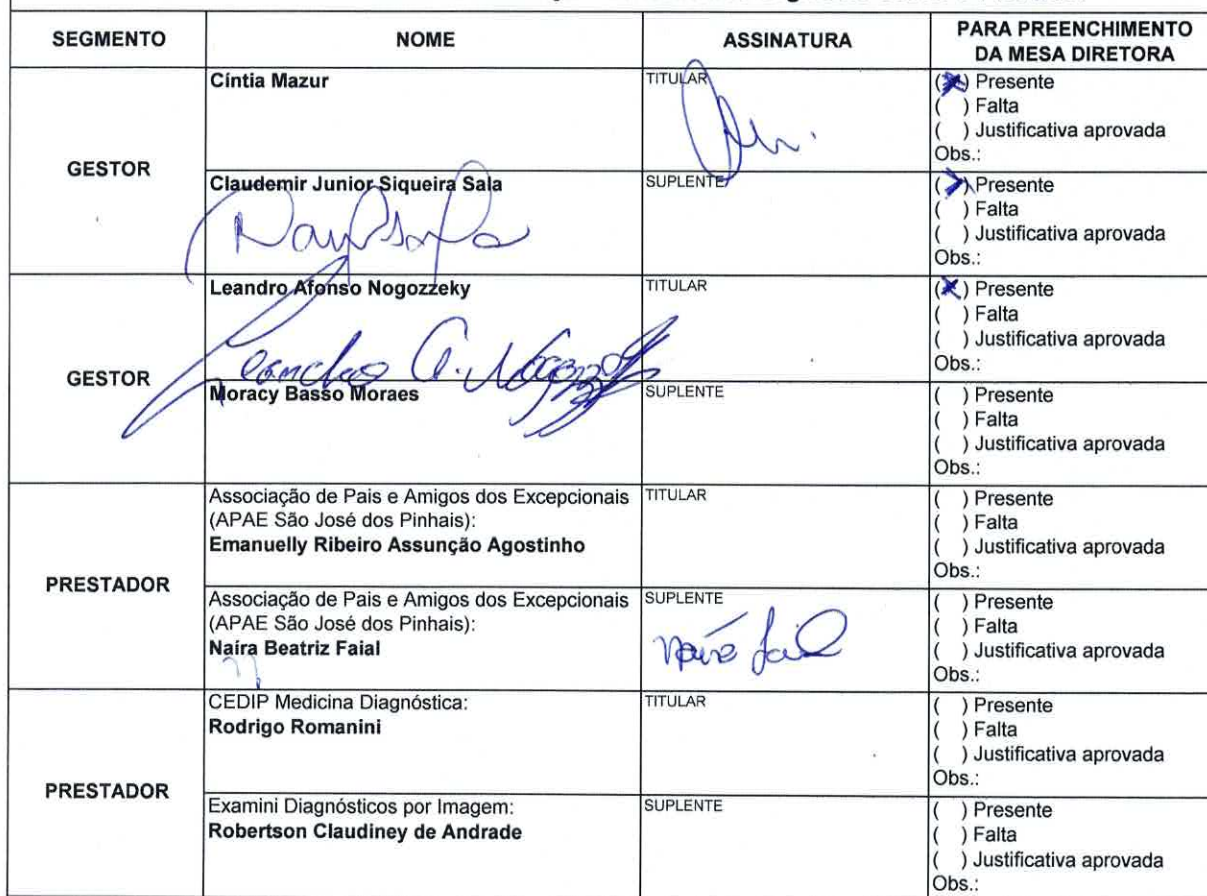 SEGMENTO NOME ASSINATURA PARA PREENCHIMENTO
DA MESA DIRETORA
GESTOR
Cíntia Mazur
TITULAR
(X) Presente
( ) Falta
( ) Justificativa aprovada
Obs.:
Claudemir Junior Siqueira Sala
SUPLENTE
(X) Presente
( ) Falta
( ) Justificativa aprovada
Obs.:
GESTOR
Leandro Afonso Nogozzeky
Leandro A. Nogozz
TITULAR
(X) Presente
( ) Falta
( ) Justificativa aprovada
Obs.:
Moracy Basso Moraes
SUPLENTE
( ) Presente
( ) Falta
( ) Justificativa aprovada
Obs.:
PRESTADOR
Associação de Pais e Amigos dos Excepcionais
(APAE São José dos Pinhais):
Emanuelly Ribeiro Assunção Agostinho
TITULAR
( ) Presente
( ) Falta
( ) Justificativa aprovada
Obs.:
Associação de Pais e Amigos dos Excepcionais
(APAE São José dos Pinhais):
Naíra Beatriz Faial
SUPLENTE
Naíra Faial
( ) Presente
( ) Falta
( ) Justificativa aprovada
Obs.:
PRESTADOR
CEDIP Medicina Diagnóstica:
Rodrigo Romanini
TITULAR
( ) Presente
( ) Falta
( ) Justificativa aprovada
Obs.:
Examini Diagnósticos por Imagem:
Robertson Claudiney de Andrade
SUPLENTE
( ) Presente
( ) Falta
( ) Justificativa aprovada
Obs.: